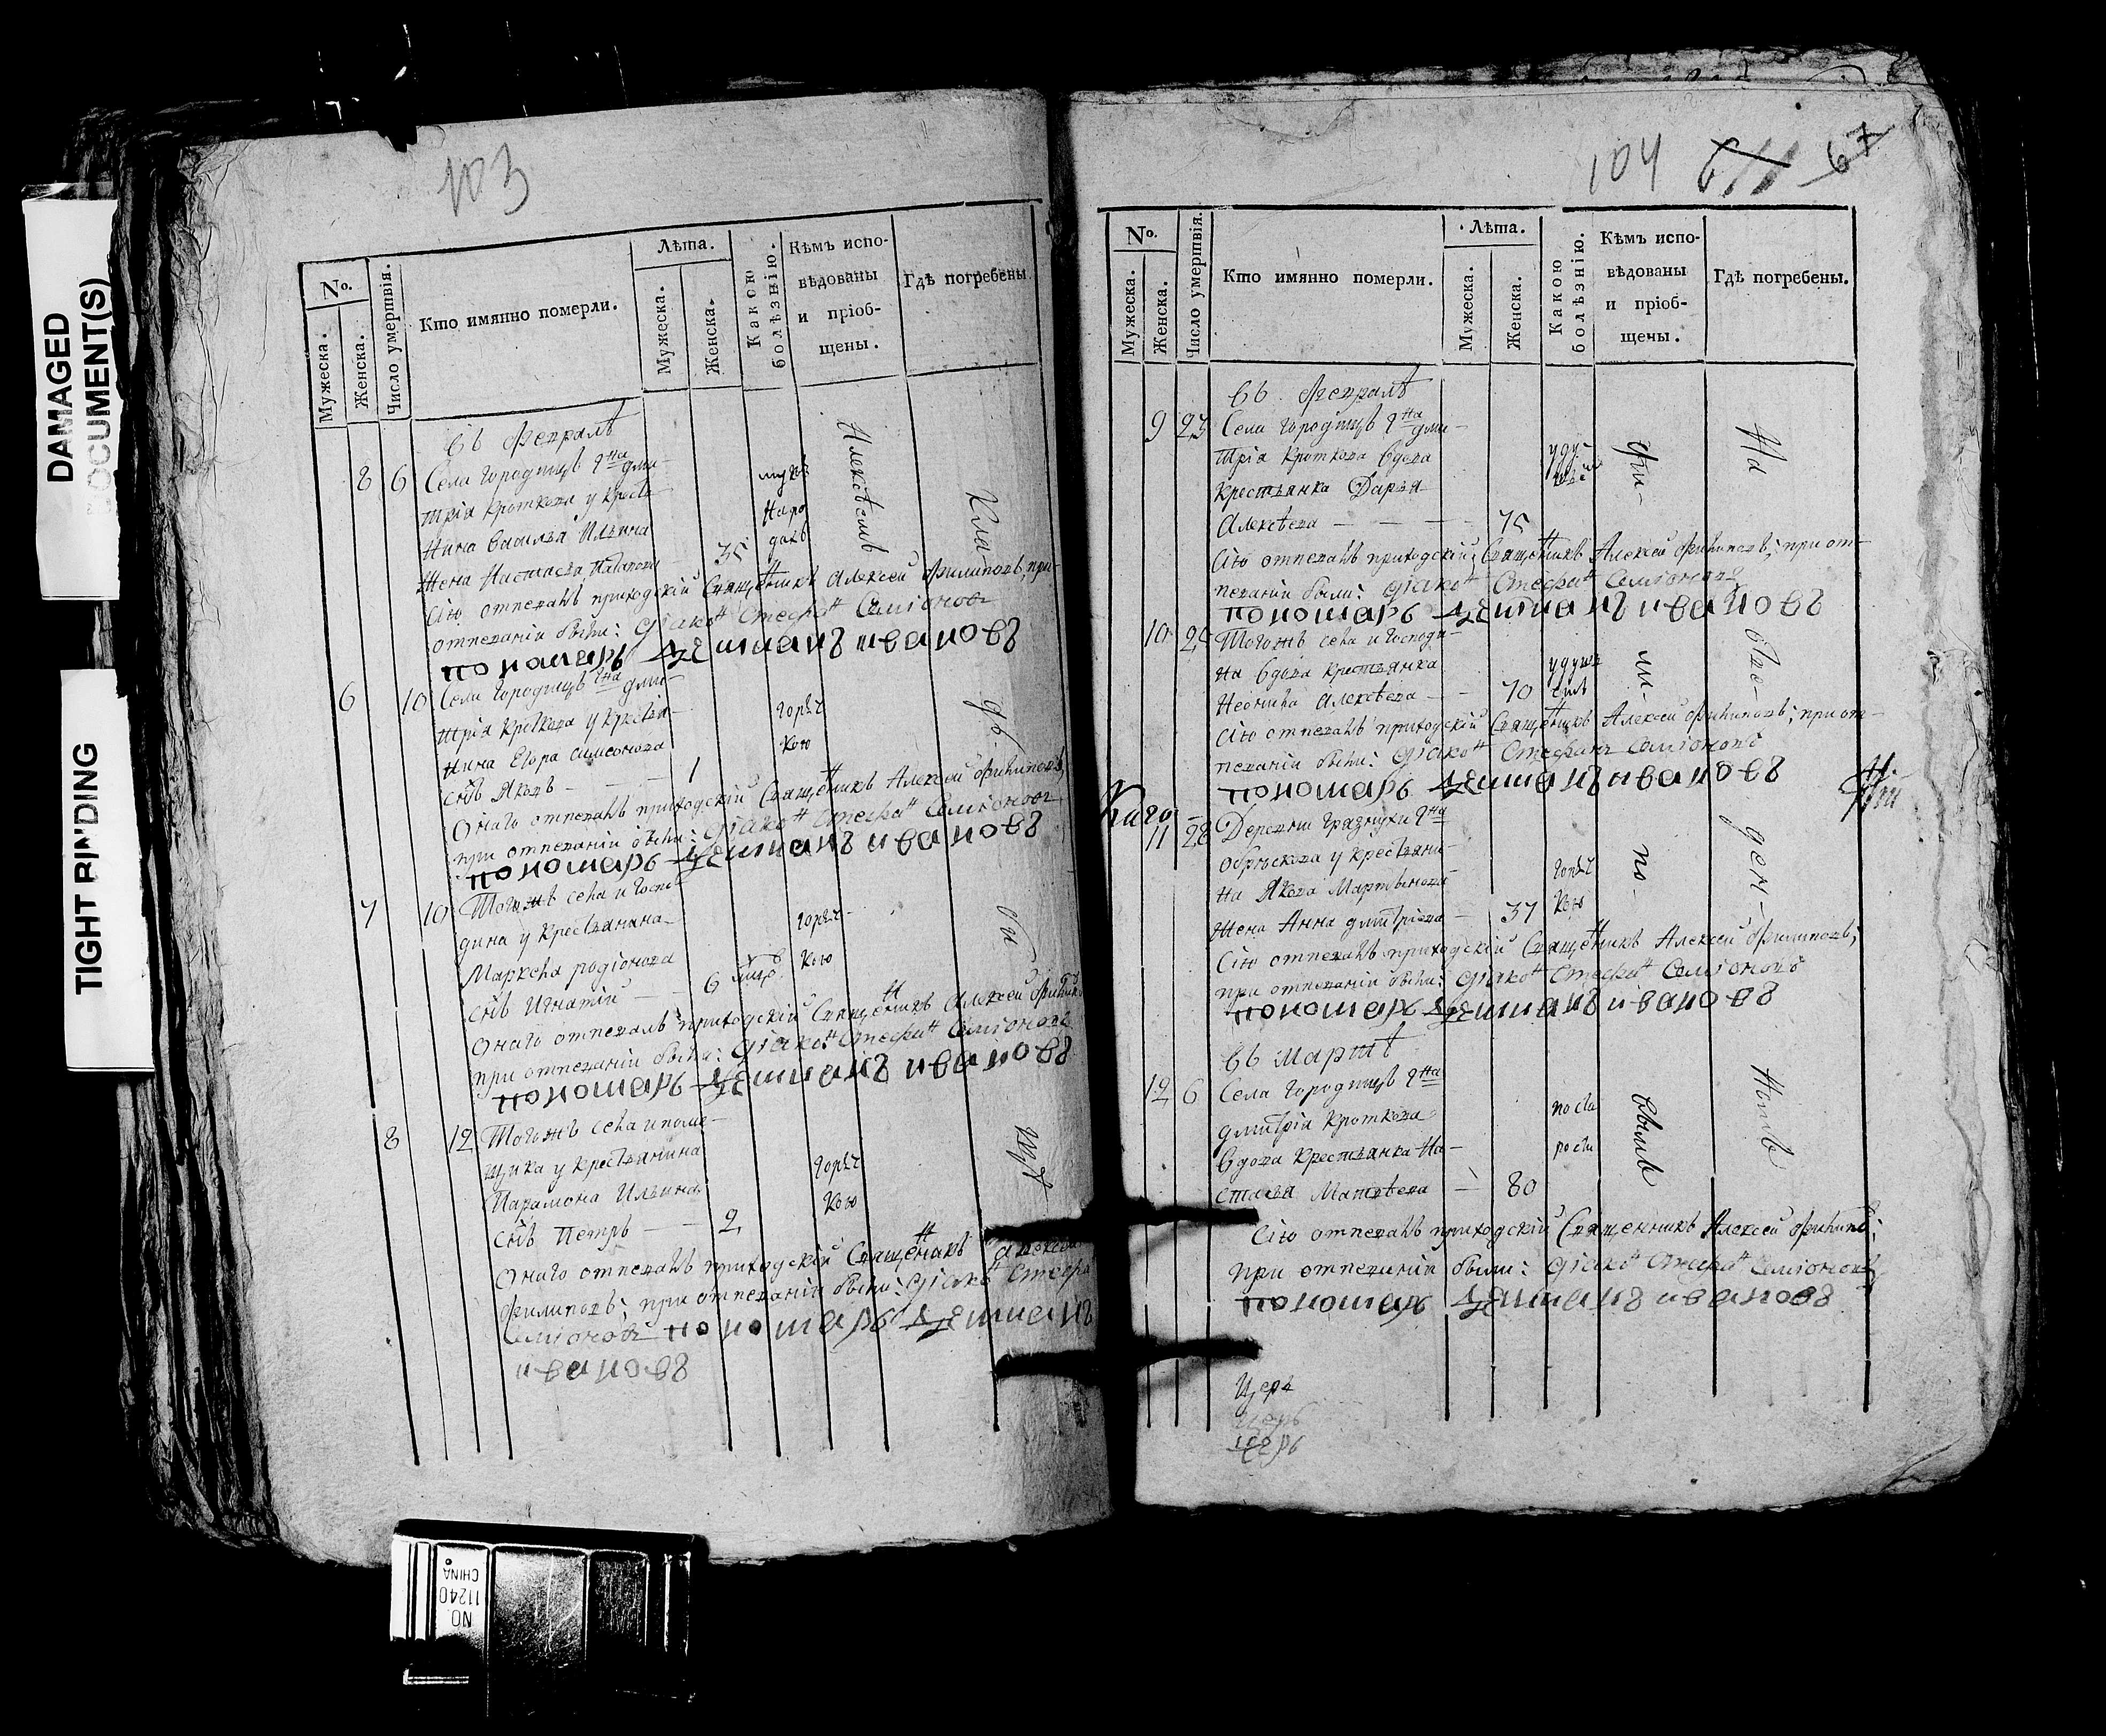 DAMAGED
DOCUMENT(S)
TIGHT BINDING
103
No.
Мужеска.
Женска.
Число умертвія.
Кто имянно померли.
Лѣта.
Мужеска.
Женска.
Какою
болѣзнію.
Кѣмъ испо-
вѣдованы
и пріоб-
щены.
Гдѣ погребены.
въ Февралѣ
8 6 Села Городищъ Гна дми-
трія Кроткова у Кресть
нина Василья Ильина
жена Настасья 35
Сію отпевалъ приходскій Священникъ Алексей Филиповъ, при
отпеваніи были: діаконъ Стефанъ Семіоновъ
пономарь иванъ ивановъ
6 10 Села Городищъ Гна дми-
трія Кроткова у Крестья-
нина Егора Симеонова
сынъ Яковъ — — 1
горяч
кою
Онаго отпевалъ приходскій Священникъ Алексей Филиповъ,
при отпеваніи были: діаконъ Стефанъ Семіоновъ
пономарь ивановъ
7 10 Тогожъ села и Госпо
дина у Крестьянина
Маркела родіонова
сынъ Игнатій — 6
горяч-
кою
Онаго отпевалъ приходскій Священникъ Алексей Филипов
при отпеваніи были: діаконъ Стефанъ Семіоновъ
пономарь ивановъ
8 12 Тогожъ села и поме-
щика у Крестьянина
Парамона Ильина
сынъ Петръ — — 2
горяч
кою
Онаго отпевалъ приходскій Священникъ Алексей
Филиповъ; при отпеваніи были: діаконъ Стефа
Семіоновъ пономарь
ивановъ
Алексѣемъ
Кла
дб
би
щѣ
104 67
No.
Мужеска.
Женска.
Число умертвія.
Кто имянно померли.
Лѣта.
Мужеска.
Женска.
Какою
болѣзнію.
Кѣмъ испо-
вѣдованы
и пріоб-
щены.
Гдѣ погребены.
въ Февралѣ
9 23 Села Городищъ Гна дми-
трія Кроткова вдова
крестьянка Дарья
Алексѣева — — — 75
Сію отпевалъ приходскій Священникъ Алексей Филиповъ; при от-
певаніи были: діаконъ Стефанъ Семіоновъ
пономарь ивановъ
10 25 Тогожъ села и Господи-
на вдова крестьянка
Неонила Алексѣева — — 70
удуш
емъ
Сію отпевалъ приходскій Священникъ Алексей Филиповъ; при от-
певаніи были: діаконъ Стефанъ Семіоновъ
пономарь ивановъ
11 28 Деревни Грязнухи Гна
Обрѣскова у крестьяни-
на Якова Мартынова
жена Анна дмитріева — 37
горяч
кою
Сію отпевалъ приходскій Священникъ Алексей Филиповъ;
при отпеваніи были: діаконъ Стефанъ Семіоновъ
пономарь ивановъ
въ Мартѣ
12 6 Села Городищъ Гна
дмитрія Кроткова
вдова крестьянка На-
стасья Матвѣева — 80
по ста
рости
Сію отпевалъ приходскій Священникъ Алексей Филипов:
при отпеваніи были: діаконъ Стефанъ Семіоновъ
пономарь ивановъ
Фи-
ли-
по-
вымъ
На
отве-
ден-
номъ
Церк
NO.
11240
CHINA